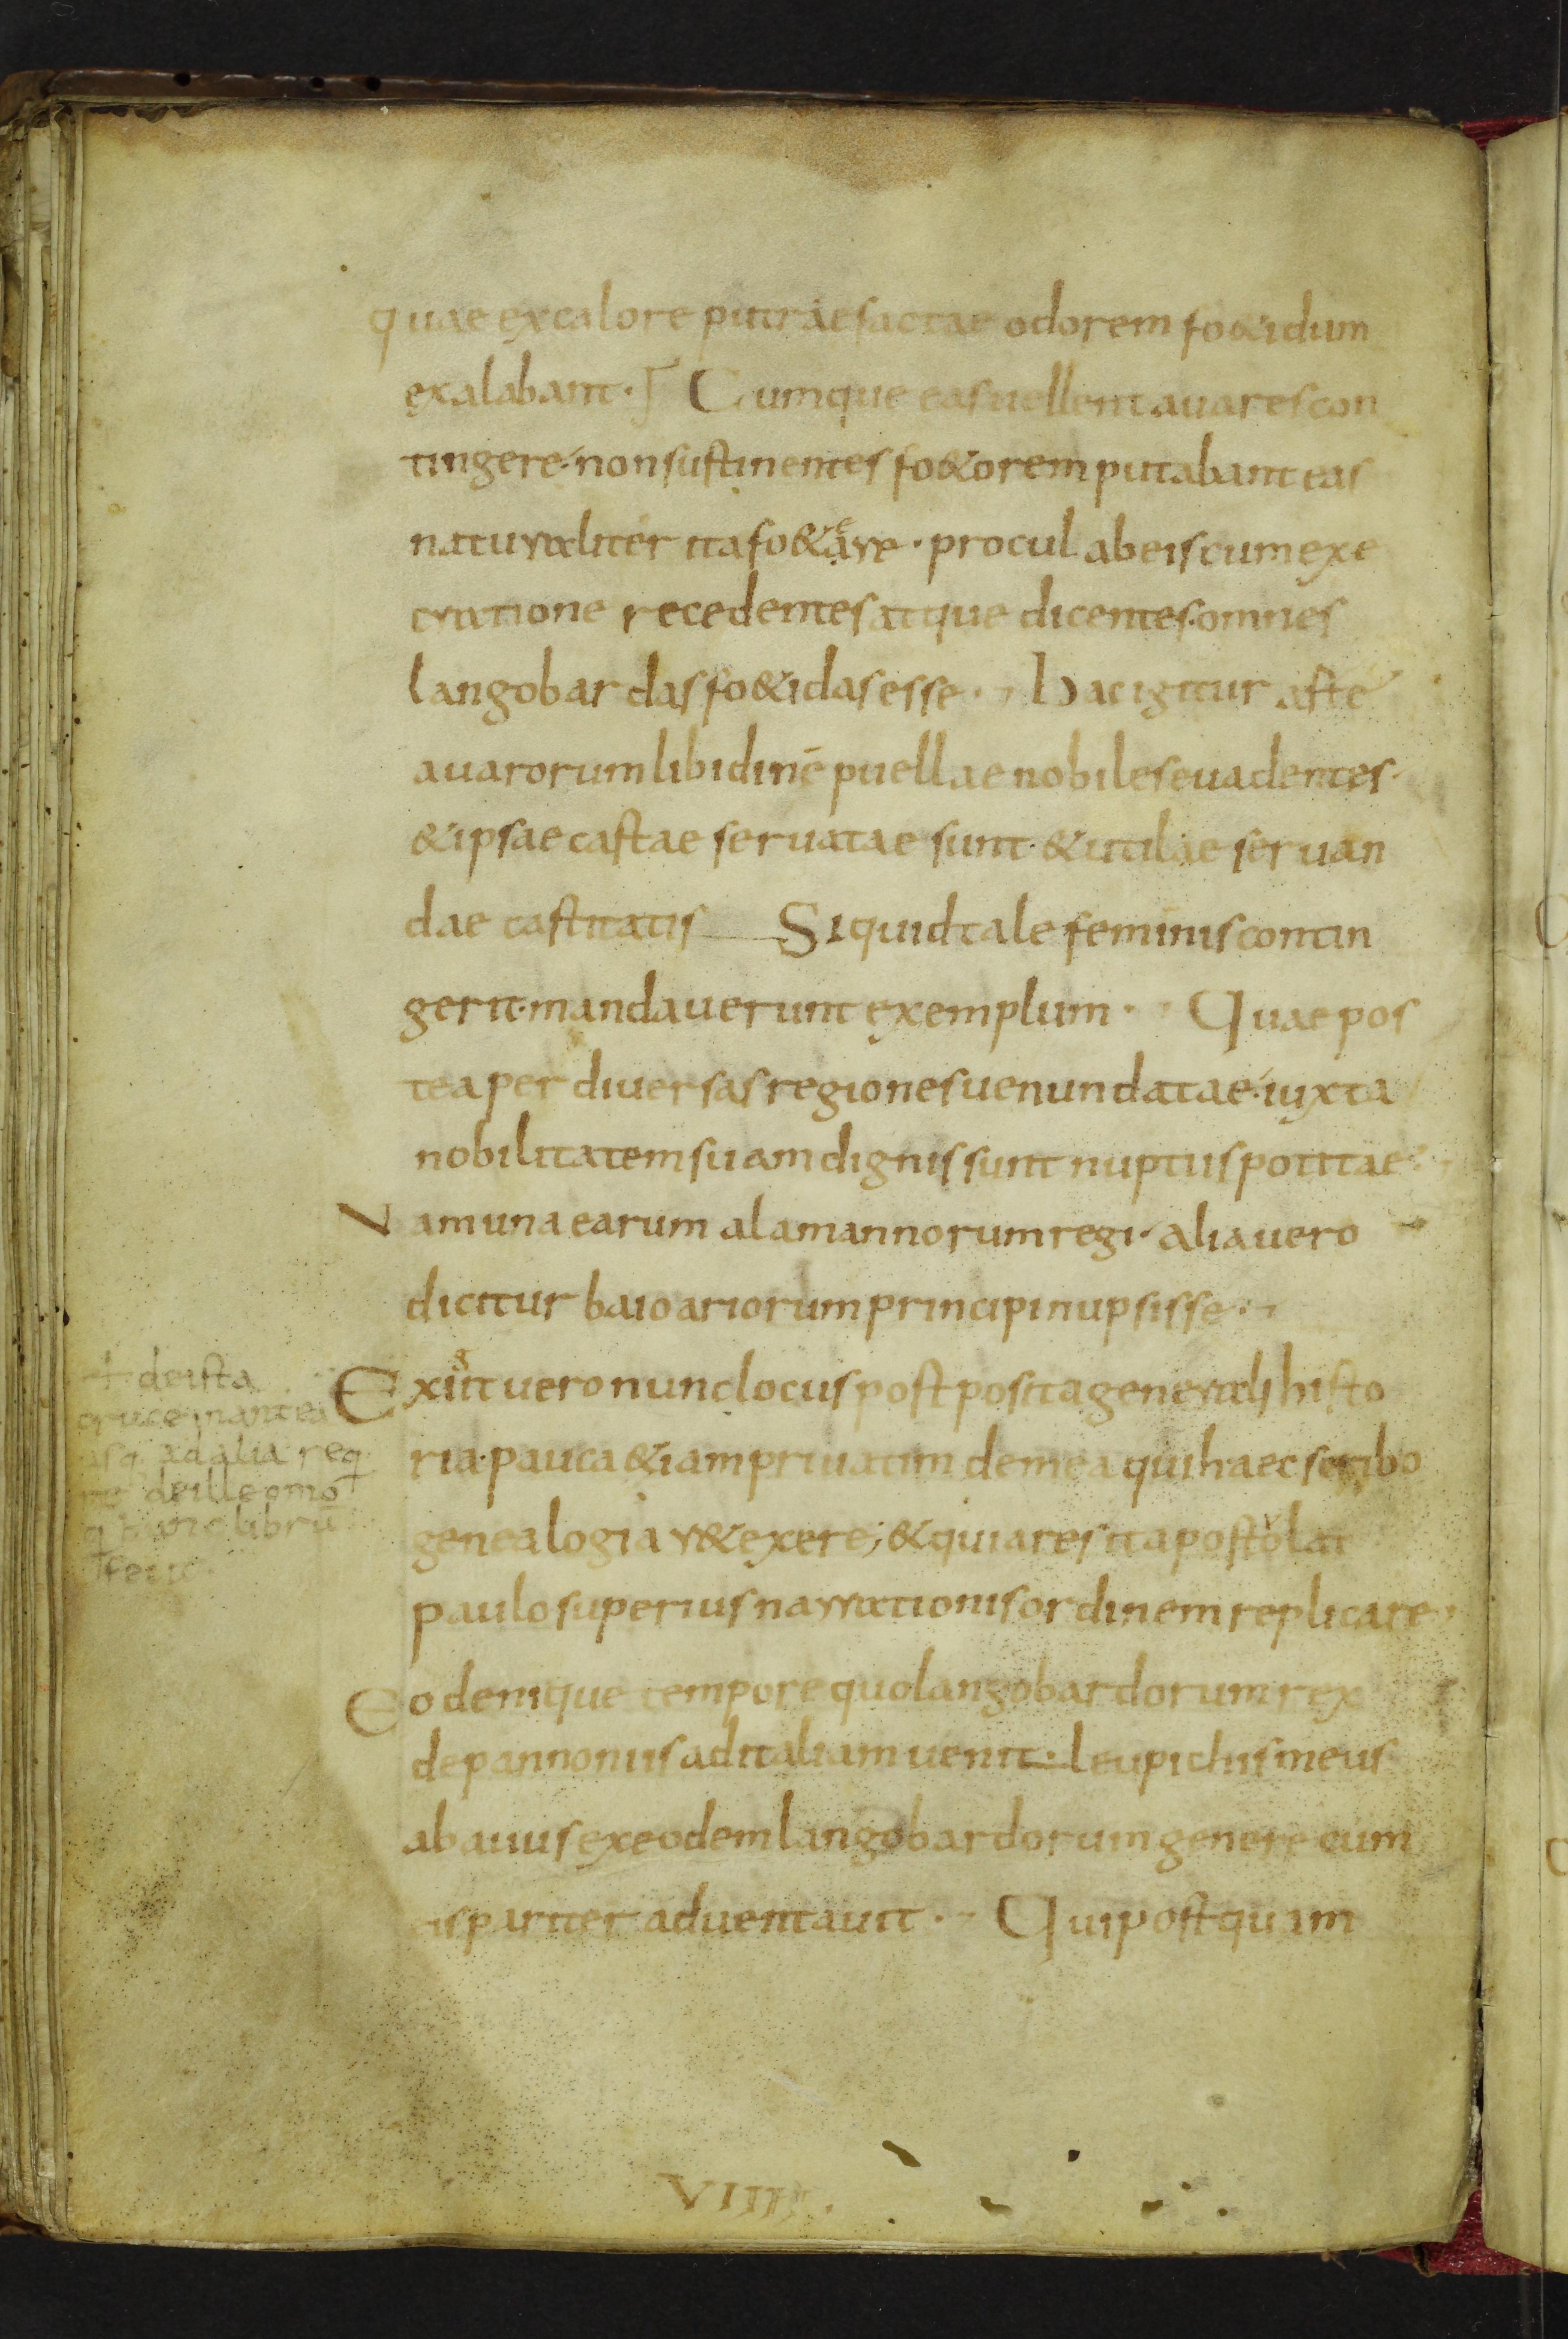 quae ex calore putraefactae odorem fo&idum
exalabant · Cumque eas uellent auares con
tingere · non sustinentes fo&orem putabant eas
naturaliter ita fo&aere · procul ab eis cum exe
cratione recedentes atque dicentes · omnes
langobardas fo&idas esse · Hac igitur aste
auarorum libidinē puellae nobiles euadentes ·
& ipsae castae seruatae sunt · & utilae seruan
dae castitatis Si quid tale feminis contin
gerit · mandauerunt exemplum · Quae pos
tea per diuersas regiones uenundatae · iuxta
nobilitatem suam dignis sunt nuptiis potitae ·
Nam una earum alamannorum regi · alia uero
dicitur baioariorum principi nupsisse ·
Exigit uero nunc locus postposita generali histo
ria · pauca &iam priuatim de mea qui haec scribo
genealogia r&exere ; & quia res ita postolat
paulo superius narrationis ordinem replicare
Eodemque tempore quo langobardorum rex
de pannoniis ad italiam uenit · leupichis meus
abauus ex eodem langobardorum genere cum
is pariter aduentauit · Qui postquam
de ista
cruce in antea
usq ad alia req
de ille omo
q hunc librū
fecit
VIIII ·